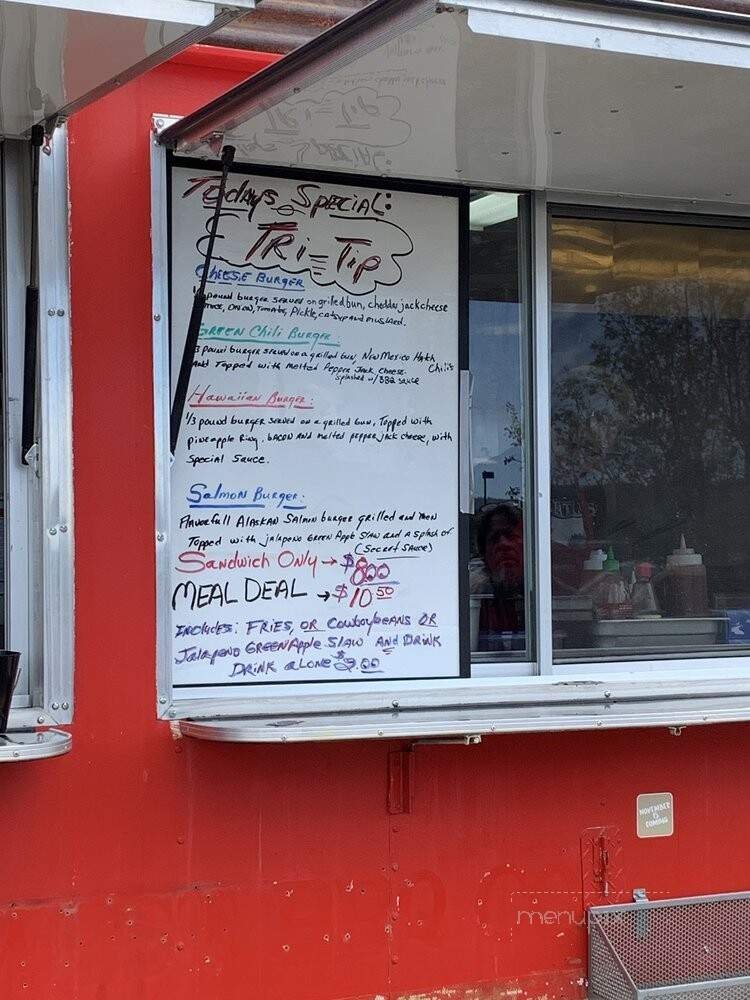 Todays Special:
Tri-Tip
Cheese Burger
pound burger served on grilled bun, cheddar jack cheese
onion, Tomato, Pickle, catsup and mustard.
Green Chili Burger:
3 pound burger served on a grilled bun, New Mexico Hatch
Chili's
And Topped with melted Pepper Jack Cheese.
splashed w/ BBQ sauce
Hawaiian Burger:
1/3 pound burger served on a grilled bun, Topped with
pineapple Ring, bacon and melted pepper jack cheese, with
Special Sauce.
Salmon Burger:
Flavorfull Alaskan Salmon burger grilled and then
Topped with jalapeno Green Apple Slaw and a splash of
(Secret Sauce)
Sandwich Only → $8.00
MEAL DEAL → $10.50
Includes: Fries, OR Cowboy beans OR
Jalapeno Green Apple Slaw AND Drink
Drink alone $2.00
NOVEMBER
IS
COMING
menupix